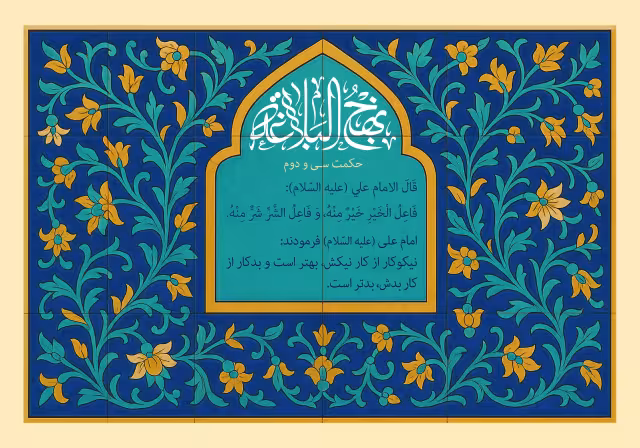 نهج البلاغة
حکمت سی و دوم
قَالَ الامام علي (علیه السّلام):
فَاعِلُ الْخَيْرِ خَيْرٌ مِنْهُ، وَ فَاعِلُ الشَّرِّ شَرٌّ مِنْهُ.
امام علی (علیه السّلام) فرمودند:
نیکوکار از کار نیکش، بهتر است و بدکار از
کار بدش، بدتر است.